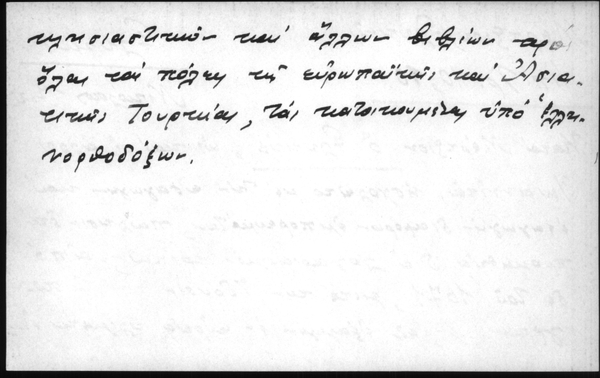 κλησιαστικῶν καί ἄλλων βιβλίων πρός
ὅλας τάς πόλεις τῆς εὐρωπαϊκῆς καί Ἀσια-
τικῆς Τουρκίας, τάς κατοικουμένας ὑπό Ἑλλη-
νορθοδόξων.